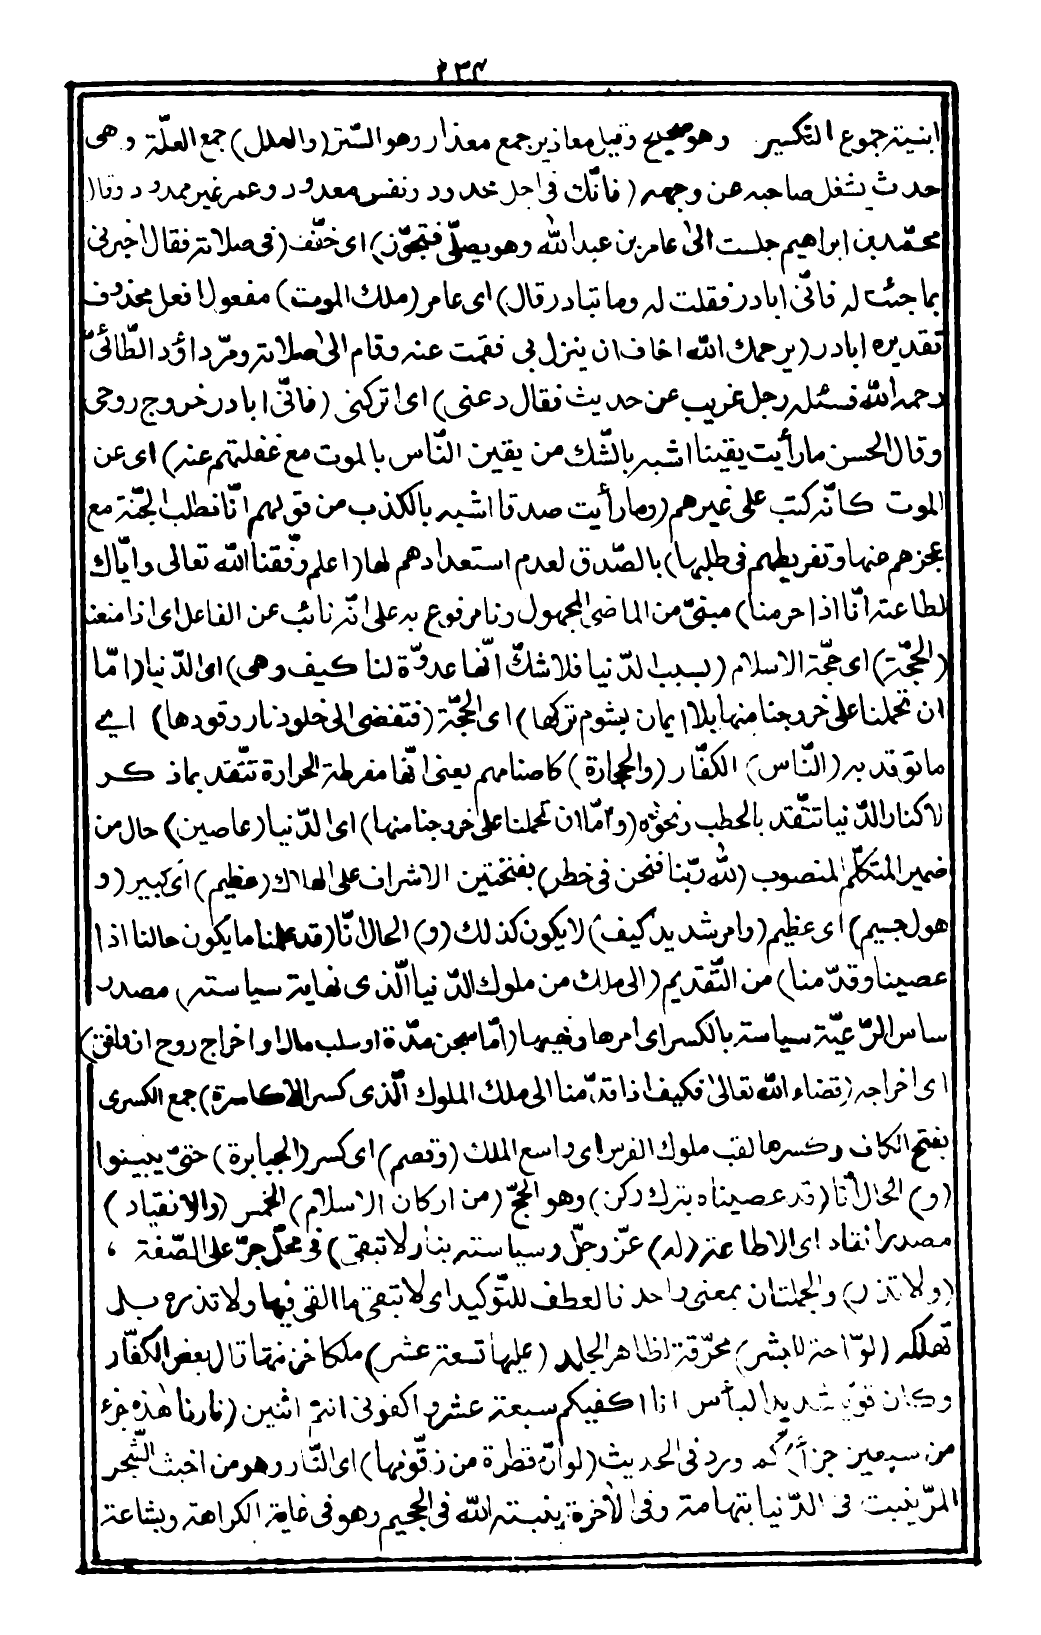 ٢٣٤
ابنية جموع التكسير وهو صحيح وقيل معاذير جمع معذار وهو السّتر (والعلل) جمع العلّة وهى
حدث يشغل صاحبه عن وجهه (فانّك فى اجل محدود ونفس معدود وعمر غير ممدود وقال
محمّد بن ابراهيم جلست الىٰ عامر بن عبد الله وهو يصلّى فتجوّز) اى خفّف (فى صلاته فقال اخبرنى
بما جئت له فانّى ابادر فقلت له وما تبادر قال) اى عامر (ملك الموت) مفعول لفعل محذوف
تقديره ابادر (يرحمك الله اخاف ان ينزل بى فقمت عنه وقام الىٰ صلاته ومرّ داؤد الطّائىّ
رحمه الله فسئله رجل غريب عن حديث فقال دعنى) اى اتركنى (فانّى ابادر خروج روحى
وقال الحسن ما رأيت يقينا اشبه بالشّك من يقين النّاس بالموت مع غفلتهم عنه) اى عن
الموت كانّه كتب على غيرهم (وما رأيت صدقا اشبه بالكذب من قولهم انّا نطلب الجنّة مع
عجزهم عنها وتفريطهم فى طلبها) بالصّدق لعدم استعدادهم لها (اعلم وفّقنا الله تعالى وايّاك
لطاعته انّا اذا حرمنا) مبنىّ من الماضى المجهول ونا مرفوع به على انّه نائب عن الفاعل اى اذا منعنا
(الحجّة) اى حجّة الاسلام (بسبب الدّنيا فلا شكّ انّها عدوّة لنا كيف وهى) اى الدّنيا (امّا
ان تحملنا على خروجنا منها بلا ايمان بشوم تركها) اى الحجّة (فتفضى الى خلود نار وقودها) اى
ما توقد به (النّاس) الكفّار (والحجارة) كاصنامهم يعنى انّها مفرطة الحرارة تتّقد بما ذكر
لا كنار الدّنيا تتّقد بالحطب ونحوه (وامّا ان تحملنا على خروجنا منها) اى الدّنيا (عاصين) حال من
ضمير المتكلّم المنصوب (لله ربّنا فنحن فى خطر) بفتحتين الاشراف على الهلاك (عظيم) اى كبير (و
هول جسيم) اى عظيم (وامر شديد كيف) لا يكون كذلك (و) الحال انّا (قد علمنا ما يكون حالنا اذا
عصينا وقدّمنا) من التّقديم (الى ملك من ملوك الدّنيا الّذى نهاية سياسته) مصدر
ساس الرّعيّة سياسة بالكسر اى امرها ونهيها (امّا سجن مدّة او سلب مال او اخراج روح ان وافق)
اى اخراجه (قضاء الله تعالىٰ فكيف اذا قدّمنا الى ملك الملوك الّذى كسر الاكاسرة) جمع الكسرى
بفتح الكاف وكسرها لقب ملوك الفرس اى واسع الملك (وقصم) اى كسر (الجبابرة) حتىّ يبينوا
(و) الحال انّا (قد عصيناه بترك ركن) وهو الحجّ (من اركان الاسلام) الخمس (والانقياد)
مصدر انقاد اى الاطاعة (له) عزّ وجلّ وسياسته بنار لا تبقى) فى محلّ جرّ على الصّفة ،
(ولا تذر) والجملتان بمعنى واحد نا لعطف للتّوكيد اى لا تبقى ما القى فيها ولا تذره بل
تهلكه (لوّاحة للبشر) محرّقة لظاهر الجلد (عليها تسعة عشر) ملكا خزنتها قال بعض الكفّار
وكان قويّا شديد البأس انا اكفيكم سبعة عشر واكفونى انتم اثنين (نارنا هٰذه جزء
من سبعين جزأ) كما ورد فى الحديث (لو انّ قطرة من زقّومها) اى النّار وهو من اخبث الشّجر
المرّ ينبت فى الدّنيا بتهامة وفى الاخرة ينبته الله فى الجحيم وهو فى غاية الكراهة وبشاعة